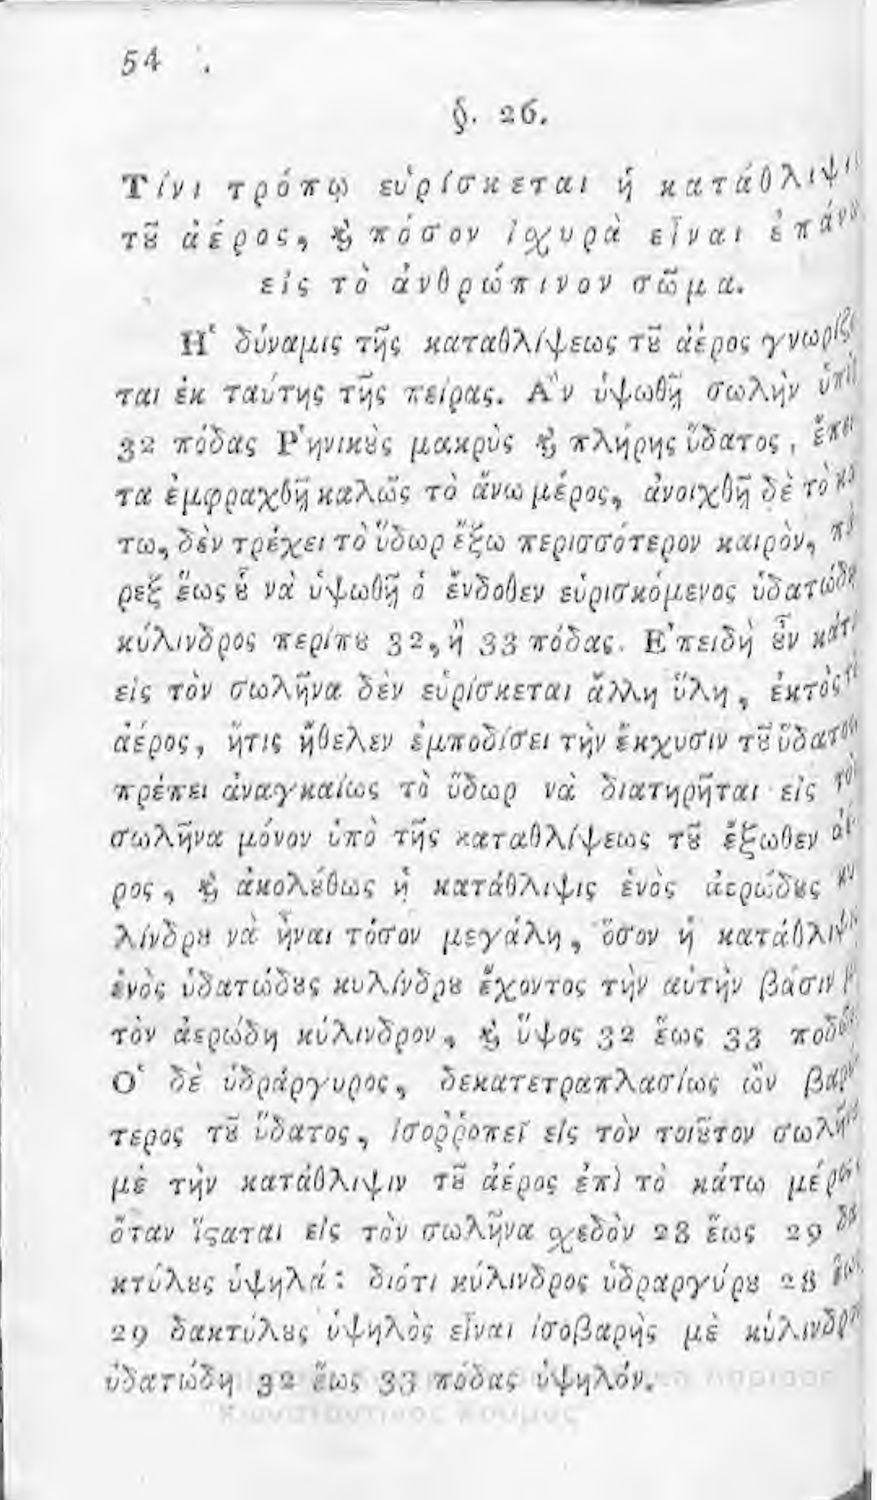 54
§. 26.
Τίνι τρόπῳ εὑρίσκεται ἡ κατάθλιψι
τȣ͂ ἀέρος, ϗ πόσον ἰσχυρὰ εἶναι ἐπάνω
εἰς τὸ ἀνθρώπινον σῶμα.
Η῾ δύναμις τῆς καταθλίψεως τȣ͂ ἀέρος γνωρίζε
ται ἐκ ταύτης τῆς πείρας. Α῎ν ὑψωθῇ σωλὴν ὑπὲρ
32 πόδας Ρ῾ηνικȣ̀ς μακρὺς ϗ πλήρης ὕδατος, ἔπει
τα ἐμφραχθῇ καλῶς τὸ ἄνω μέρος, ἀνοιχθῇ δὲ τὸ κά
τω, δὲν τρέχει τὸ ὕδωρ ἔξω περισσότερον καιρὸν, πά
ρεξ ἕως ȣ̔͂ νὰ ὑψωθῇ ὁ ἔνδοθεν εὑρισκόμενος ὑδατώδη
κύλινδρος περίπȣ 32, ἢ 33 πόδας. Ε᾿πειδὴ ȣ̓͂ν κάτω
εἰς τὸν σωλῆνα δὲν εὑρίσκεται ἄλλη ὕλη, ἐκτὸς τȣ͂
ἀέρος, ἥτις ἤθελεν ἐμποδίσει τὴν ἔκχυσιν τȣ͂ ὕδατος
πρέπει ἀναγκαίως τὸ ὕδωρ νὰ διατηρῆται εἰς τὸν
σωλῆνα μόνον ὑπὸ τῆς καταθλίψεως τȣ͂ ἔξωθεν ἀέ
ρος, ϗ ἀκολȣ́θως ἡ κατάθλιψις ἑνὸς ἀερώδȣς κυ
λίνδρȣ νὰ ἦναι τόσον μεγάλη, ὅσον ἡ κατάθλιψι
ἑνὸς ὑδατώδȣς κυλίνδρȣ ἔχοντος τὴν αὐτὴν βάσιν μ
τὸν ἀερώδη κύλινδρον, ϗ ὕψος 32 ἕως 33 ποδῶν
Ο῾ δὲ ὑδράργυρος, δεκατετραπλασίως ὢν βαρύ
τερος τȣ͂ ὕδατος, ἰσοῤῥοπεῖ εἰς τὸν τοιȣ͂τον σωλῆνα
μὲ τὴν κατάθλιψιν τȣ͂ ἀέρος ἐπὶ τὸ κάτω μέρος
ὅταν ἵϛαται εἰς τὸν σωλῆνα σχεδὸν 28 ἕως 29 δα
κτύλȣς ὑψηλά: διότι κύλινδρος ὑδραργύρȣ 28 ἕως
29 δακτύλȣς ὑψηλὸς εἶναι ἰσοβαρὴς μὲ κύλινδρον
ὑδατώδη 32 ἕως 33 πόδας ὑψηλόν.